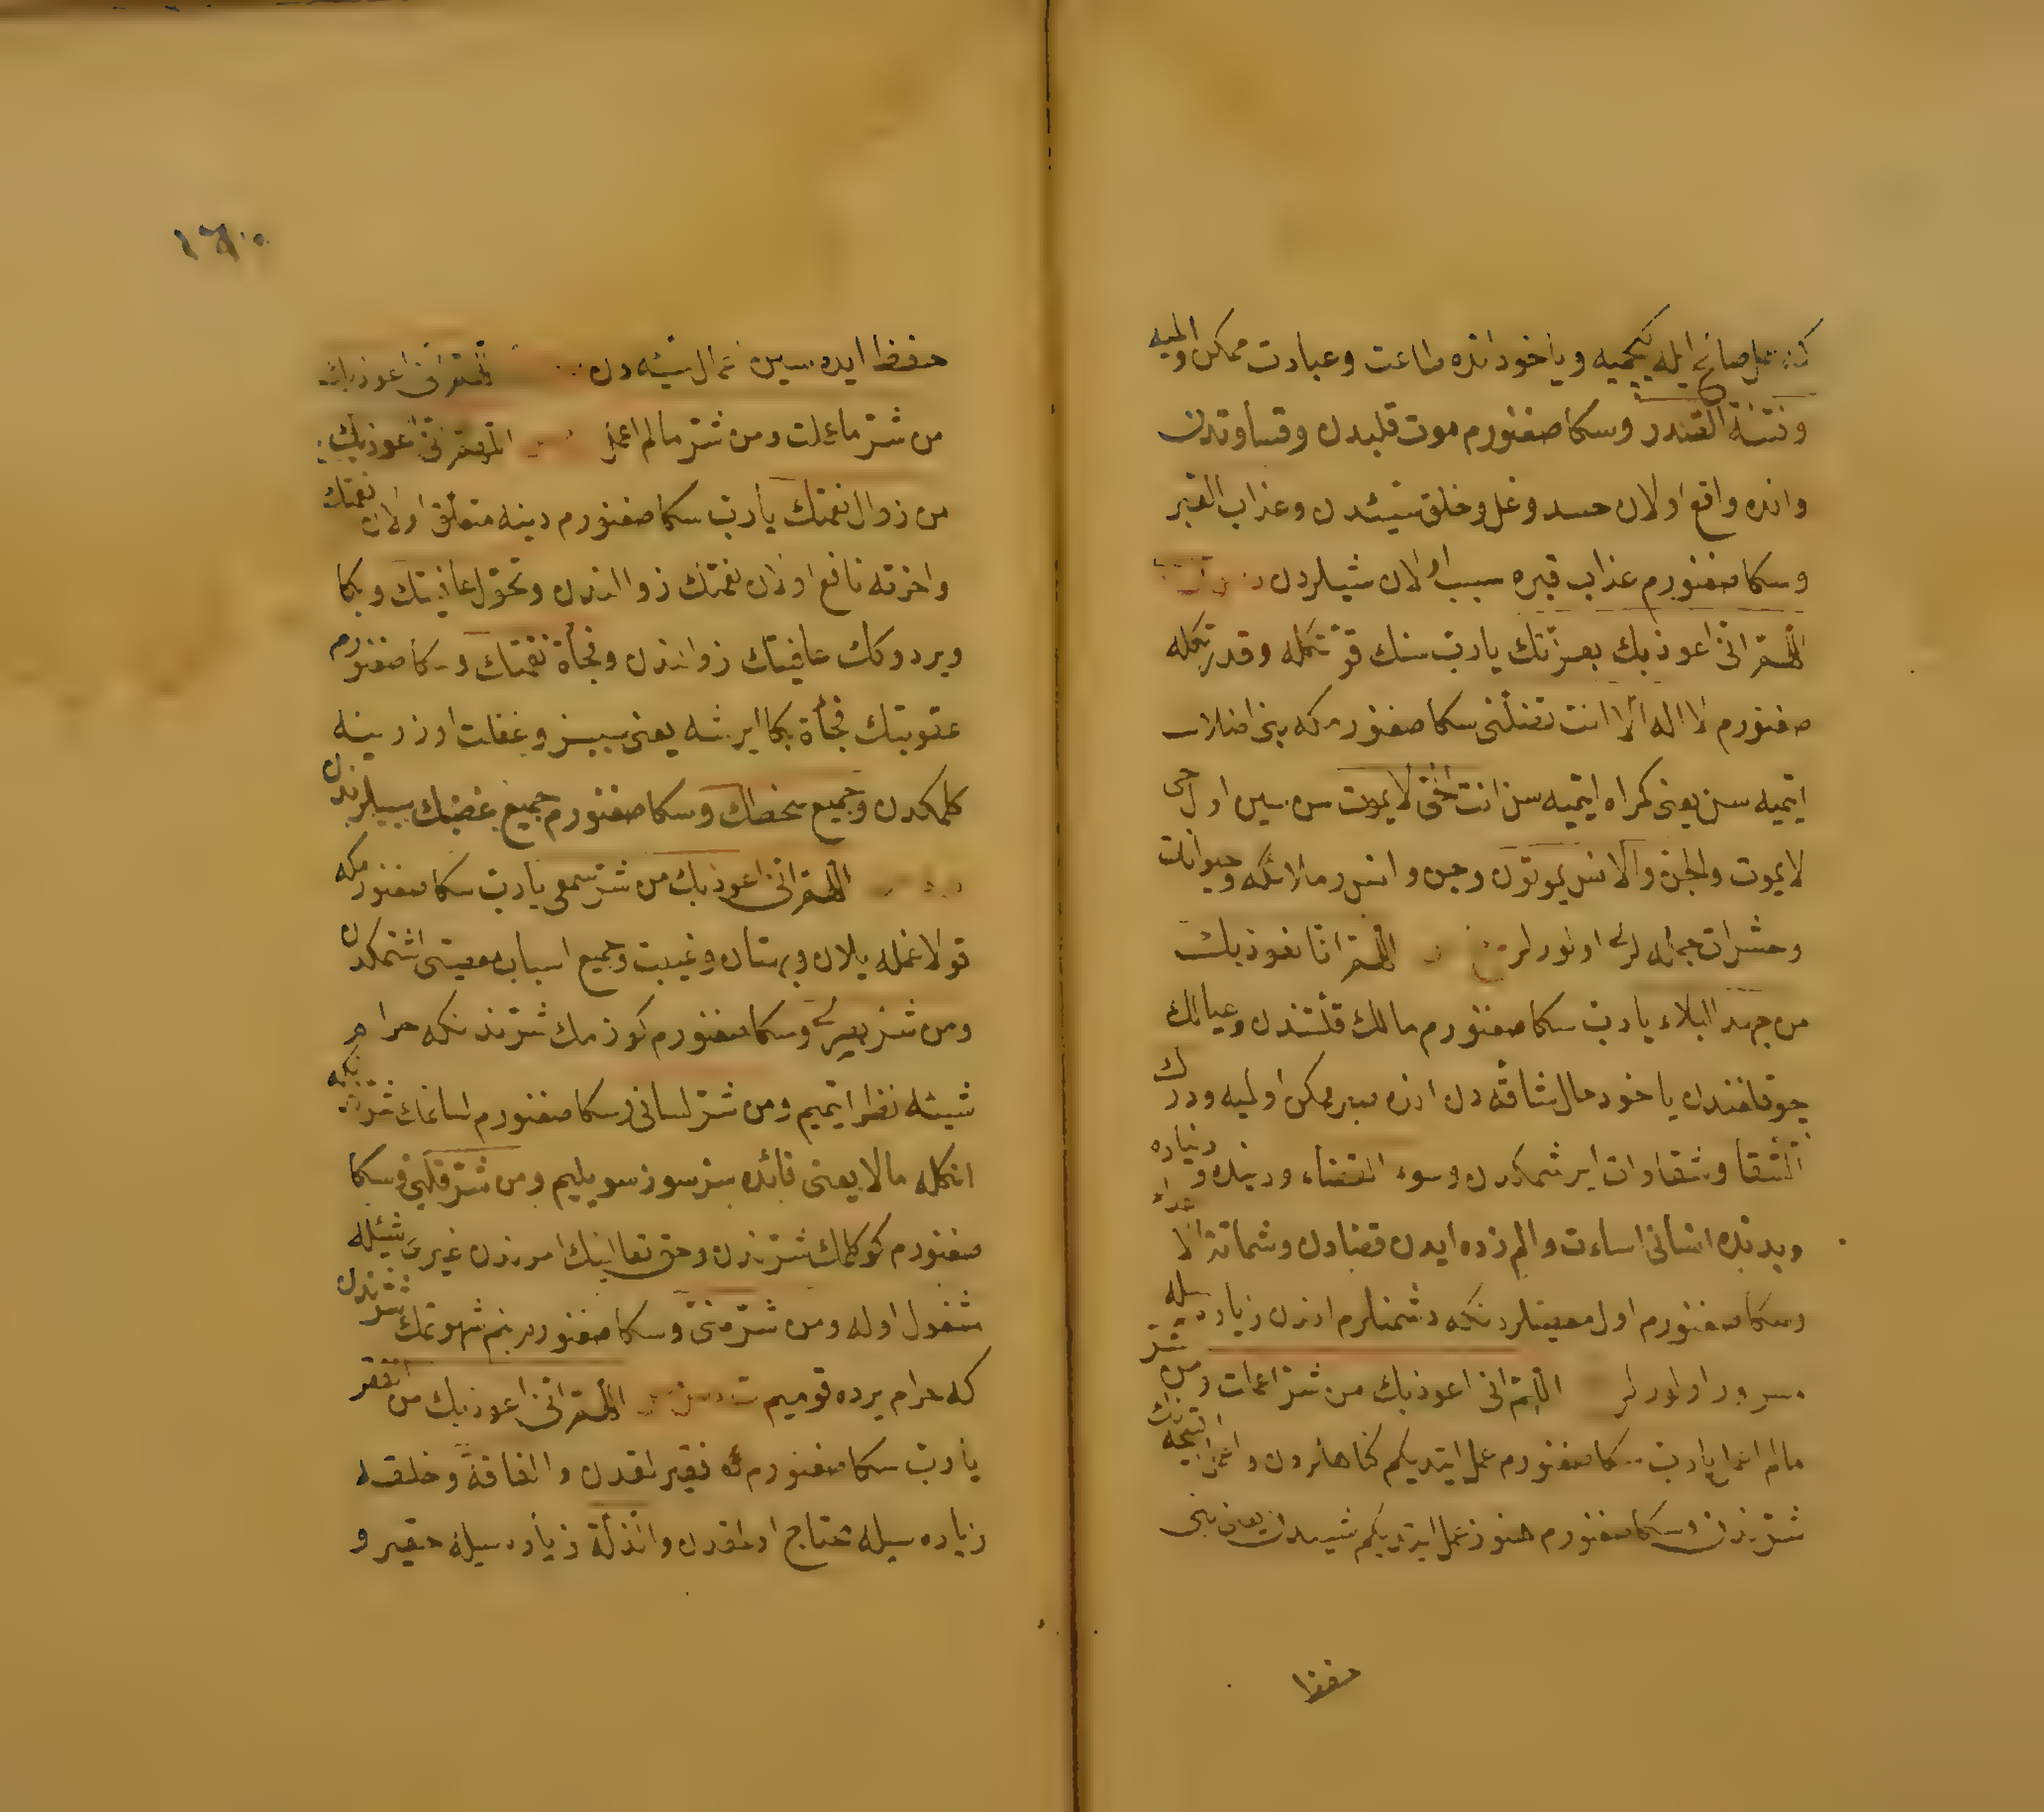 عمل صالح ايله كچميه ويا خود انده طاعت وعبادت ممكن اولميه
وفتنة الصدر وسكا صغنورم موت قلبدن وقساوتدن
وانده واقع اولان حسد وغل وخلق سيئدن وعذاب القبر
وسكا صغنورم عذاب قبره سبب اولان شيلردن
اللهم انى اعوذ بك بعزتك يا رب سنك قوتكله وقدرتكله
صغنورم لا اله الا انت تضلنى سكا صغنورم كه بنى اضلال
ايتميه سن يعنى كمراه ايتميه سن انت الحى لا يموت سن سين اول حى
لا يموت والجن والانس يموتون وجن وانس وملائكه وحيوانات
وحشرات جمله لرى اولورلر اللهم انا نعوذ بك
من جهد البلاء يا رب سكا صغنورم مالك قلتندن وعيالك
چوقلغندن يا خود حال شاقه دن انده صبر ممكن اولميه ودرك
الشقا وشقاوات ايرشمكدن وسوء القضاء ودينده ودنياده
وبدنده انسانى اساءت والم زده ايدن قضادن وشماتة الاعداء
وسكا صغنورم اول مصيبتلردنكه دشمنلرم اندن زياده سيله
مسرور اولورلر اللهم انى اعوذ بك من شر ما عملت ومن شر
مالم اعمل يا رب سكا صغنورم عمل ايتديكم كناهلردن واعمال قبيحه نك
شرندن وسكا صغنورم هنوز عمل ايتمديكم شيدن يعنى بنى
حفظ
١٦٠
حفظ ايده سين اعمال سيئه دن اللهم انى اعوذ بك
من شر ما عملت ومن شر مالم اعمل اللهم انى اعوذ بك
من زوال نعمتك يا رب سكا صغنورم دينه متعلق اولان نعمتك
واخرته نافع اولان نعمتك زوالندن وتحول عافيتك وبكا
ويردوكك عافيتك زوالندن وفجأة نقمتك وسكا صغنورم
عقوبتك فجأة بكا ايرشه يعنى سببسز وغفلت اوزرينه
كلمكدن وجميع سخطك وسكا صغنورم جميع غضبك سببلرندن
اللهم انى اعوذ بك من شر سمعى يا رب سكا صغنورمكه
قولاغمله يلان وبهتان وغيبت وجميع اسباب معصيتى اشتمكدن
ومن شر بصرى وسكا صغنورم كوزمك شرندنكه حرام
شيئه نظر ايتميم ومن شر لسانى وسكا صغنورم لسانمك شرندنكه
انكله مالا يعنى فائده سز سوز سويليم ومن شر قلبى وسكا
صغنورم كوكلمك شرندن وحق تعالينك امرندن غيرى شيئله
مشغول اوله ومن شر منى وسكا صغنورم بنم شهوتمك شرندن
كه حرام يرده قوميم اللهم انى اعوذ بك من الفقر
يا رب سكا صغنورم فقيرلقدن والفاقة وخلقه
زياده سيله محتاج اولمقدن والذلة زياده سيله حقير و